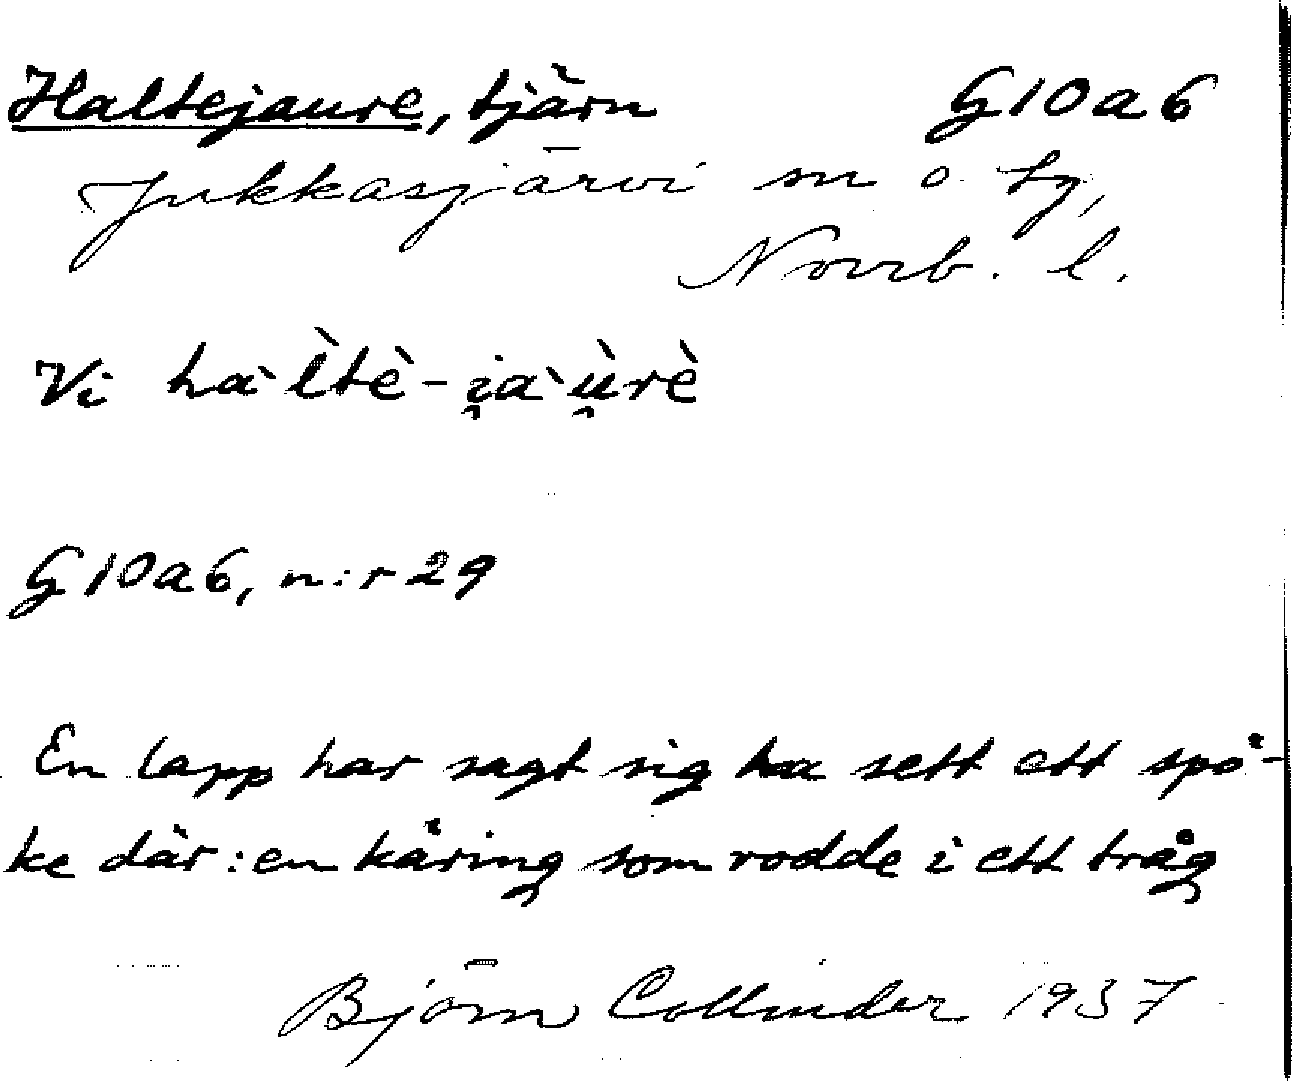 Haltejaure, tjärn G10a6
Jukkasjärvi sn o tg,
Norrb. l.
Vi hàl̀tè-i̯àù̯rè
G10a6, n:r 29
En lapp har sagt sig ha sett ett spö-
ke där: en käring som rodde i ett tråg
Björn Collinder 1937